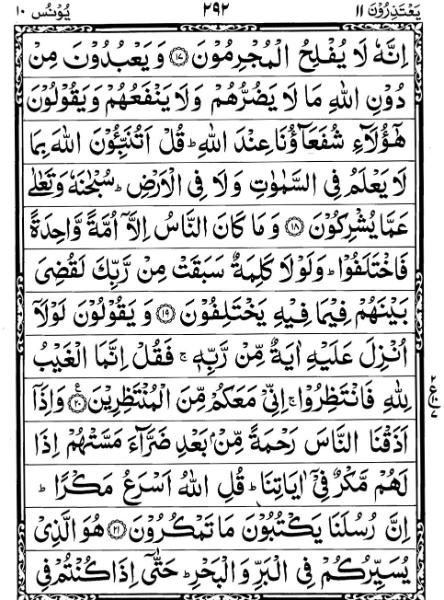 یَعْتَذِرُوْنَ ۱۱ ۲۹۲ یُوْنُس ۱۰
اِنَّهٗ لَا یُفْلِحُ الْمُجْرِمُوْنَ ﴿۱۷﴾ وَ یَعْبُدُوْنَ مِنْ
دُوْنِ اللّٰهِ مَا لَا یَضُرُّهُمْ وَلَا یَنْفَعُهُمْ وَیَقُوْلُوْنَ
هٰۤؤُلَآءِ شُفَعَآؤُنَا عِنْدَ اللّٰهِ ؕ قُلْ اَتُنَبِّـُٔوْنَ اللّٰهَ بِمَا
لَا یَعْلَمُ فِی السَّمٰوٰتِ وَلَا فِی الْاَرْضِ ؕ سُبْحٰنَهٗ وَتَعٰلٰی
عَمَّا یُشْرِكُوْنَ ﴿۱۸﴾ وَ مَا كَانَ النَّاسُ اِلَّاۤ اُمَّةً وَّاحِدَةً
فَاخْتَلَفُوْا ؕ وَلَوْلَا كَلِمَةٌ سَبَقَتْ مِنْ رَّبِّكَ لَقُضِیَ
بَیْنَهُمْ فِیْمَا فِیْهِ یَخْتَلِفُوْنَ ﴿۱۹﴾ وَ یَقُوْلُوْنَ لَوْلَاۤ
اُنْزِلَ عَلَیْهِ اٰیَةٌ مِّنْ رَّبِّهٖ ۚ فَقُلْ اِنَّمَا الْغَیْبُ
لِلّٰهِ فَانْتَظِرُوْا ۚ اِنِّیْ مَعَكُمْ مِّنَ الْمُنْتَظِرِیْنَ ﴿۲۰﴾ وَاِذَاۤ
اَذَقْنَا النَّاسَ رَحْمَةً مِّنْۢ بَعْدِ ضَرَّآءَ مَسَّتْهُمْ اِذَا
لَهُمْ مَّكْرٌ فِیْۤ اٰیَاتِنَا ؕ قُلِ اللّٰهُ اَسْرَعُ مَكْرًا ؕ
اِنَّ رُسُلَنَا یَكْتُبُوْنَ مَا تَمْكُرُوْنَ ﴿۲۱﴾ هُوَ الَّذِیْ
یُسَیِّرُكُمْ فِی الْبَرِّ وَ الْبَحْرِ ؕ حَتّٰۤی اِذَا كُنْتُمْ فِی